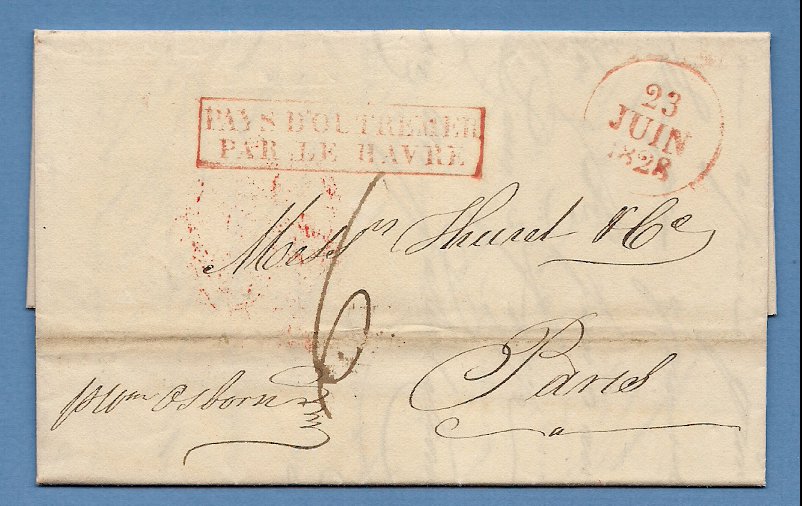 PAYS D'OUTREMER
PAR LE HAVRE
23
JUIN
1828
Mess.rs Thuret & Ce
6
Paris
p Wm Osborn